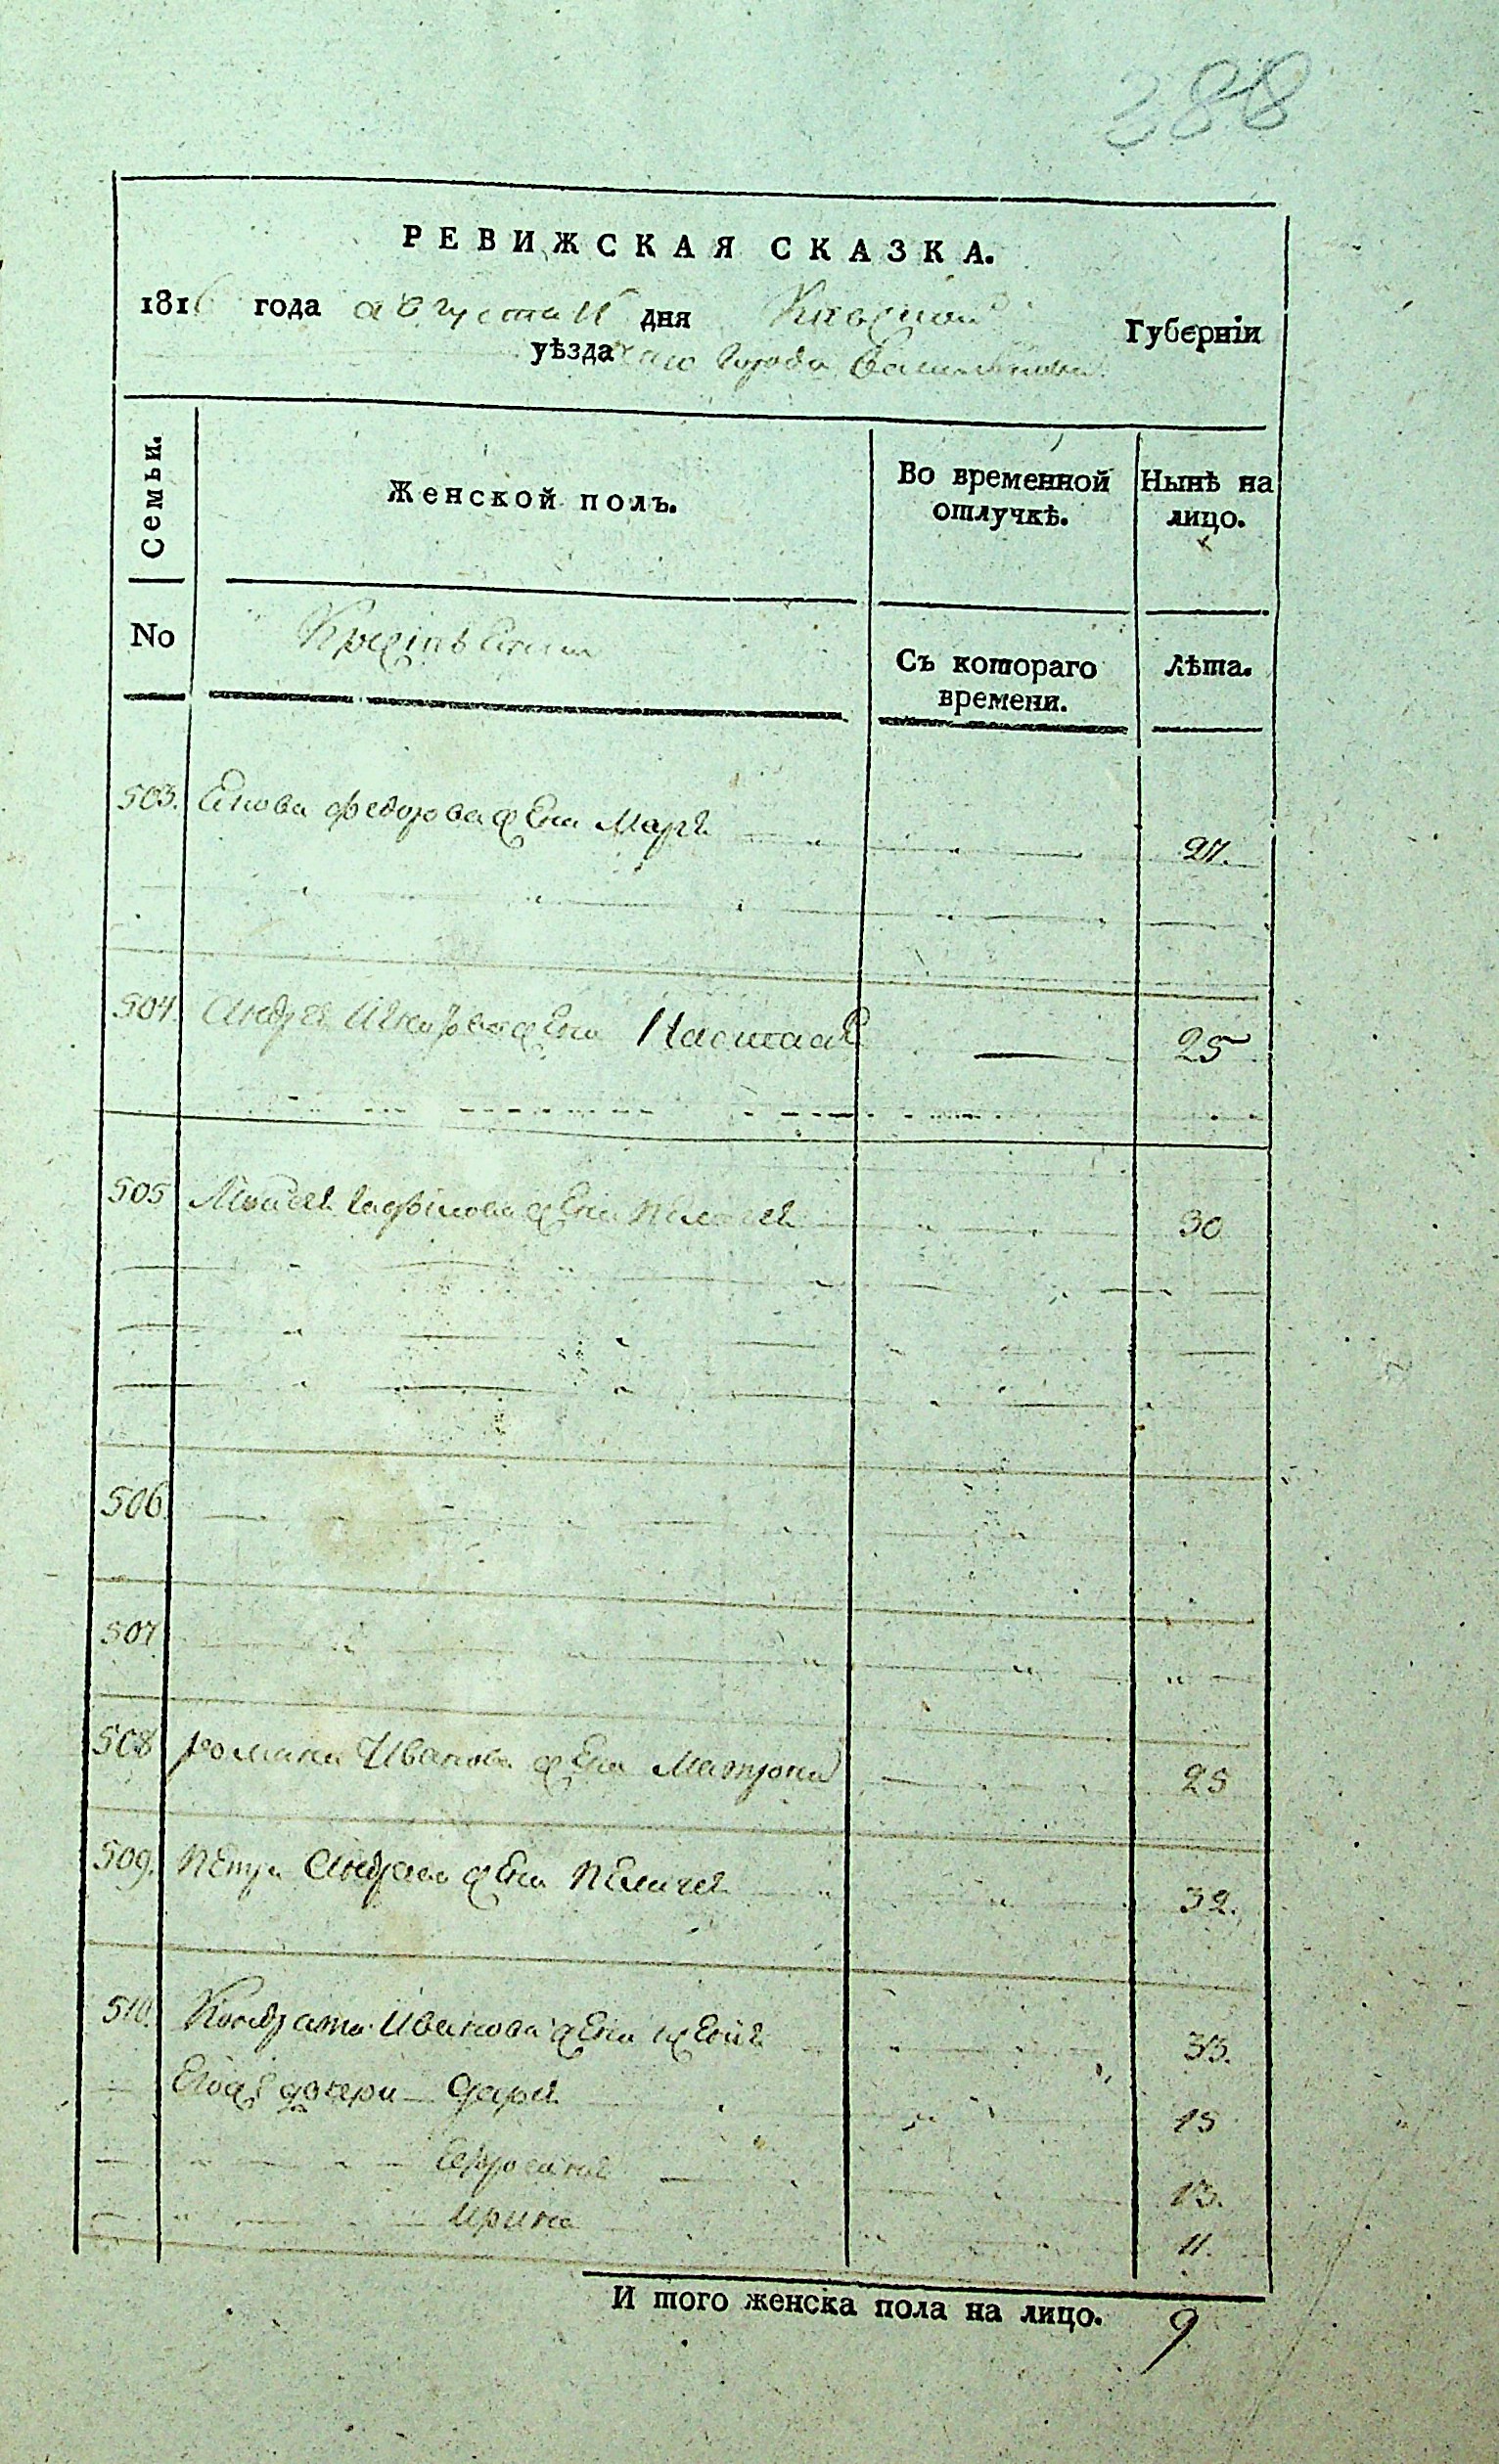 288
РЕВИЖСКАЯ СКАЗКА.
1816 года августа 15 дня Киевской Губерніи
уѣзда города Василькова
Семьи.
Женской полъ.
Во временной отлучкѣ.
Нынѣ на лицо.
No
Съ котораго времени.
Лѣта.
503. Федорова жена Маря 27.
504. Андрея жена Настася 25
505 Мойсея жена Пелагея 30
506
507
508 Романа Иванова жена Матрона 25
509. Петра Андреева жена Пелагея 32.
510. Кондрата Иванова жена 33.
Его дочери Даря 15
Ефросиня 13.
Ирина 11.
И того женска пола на лицо. 9